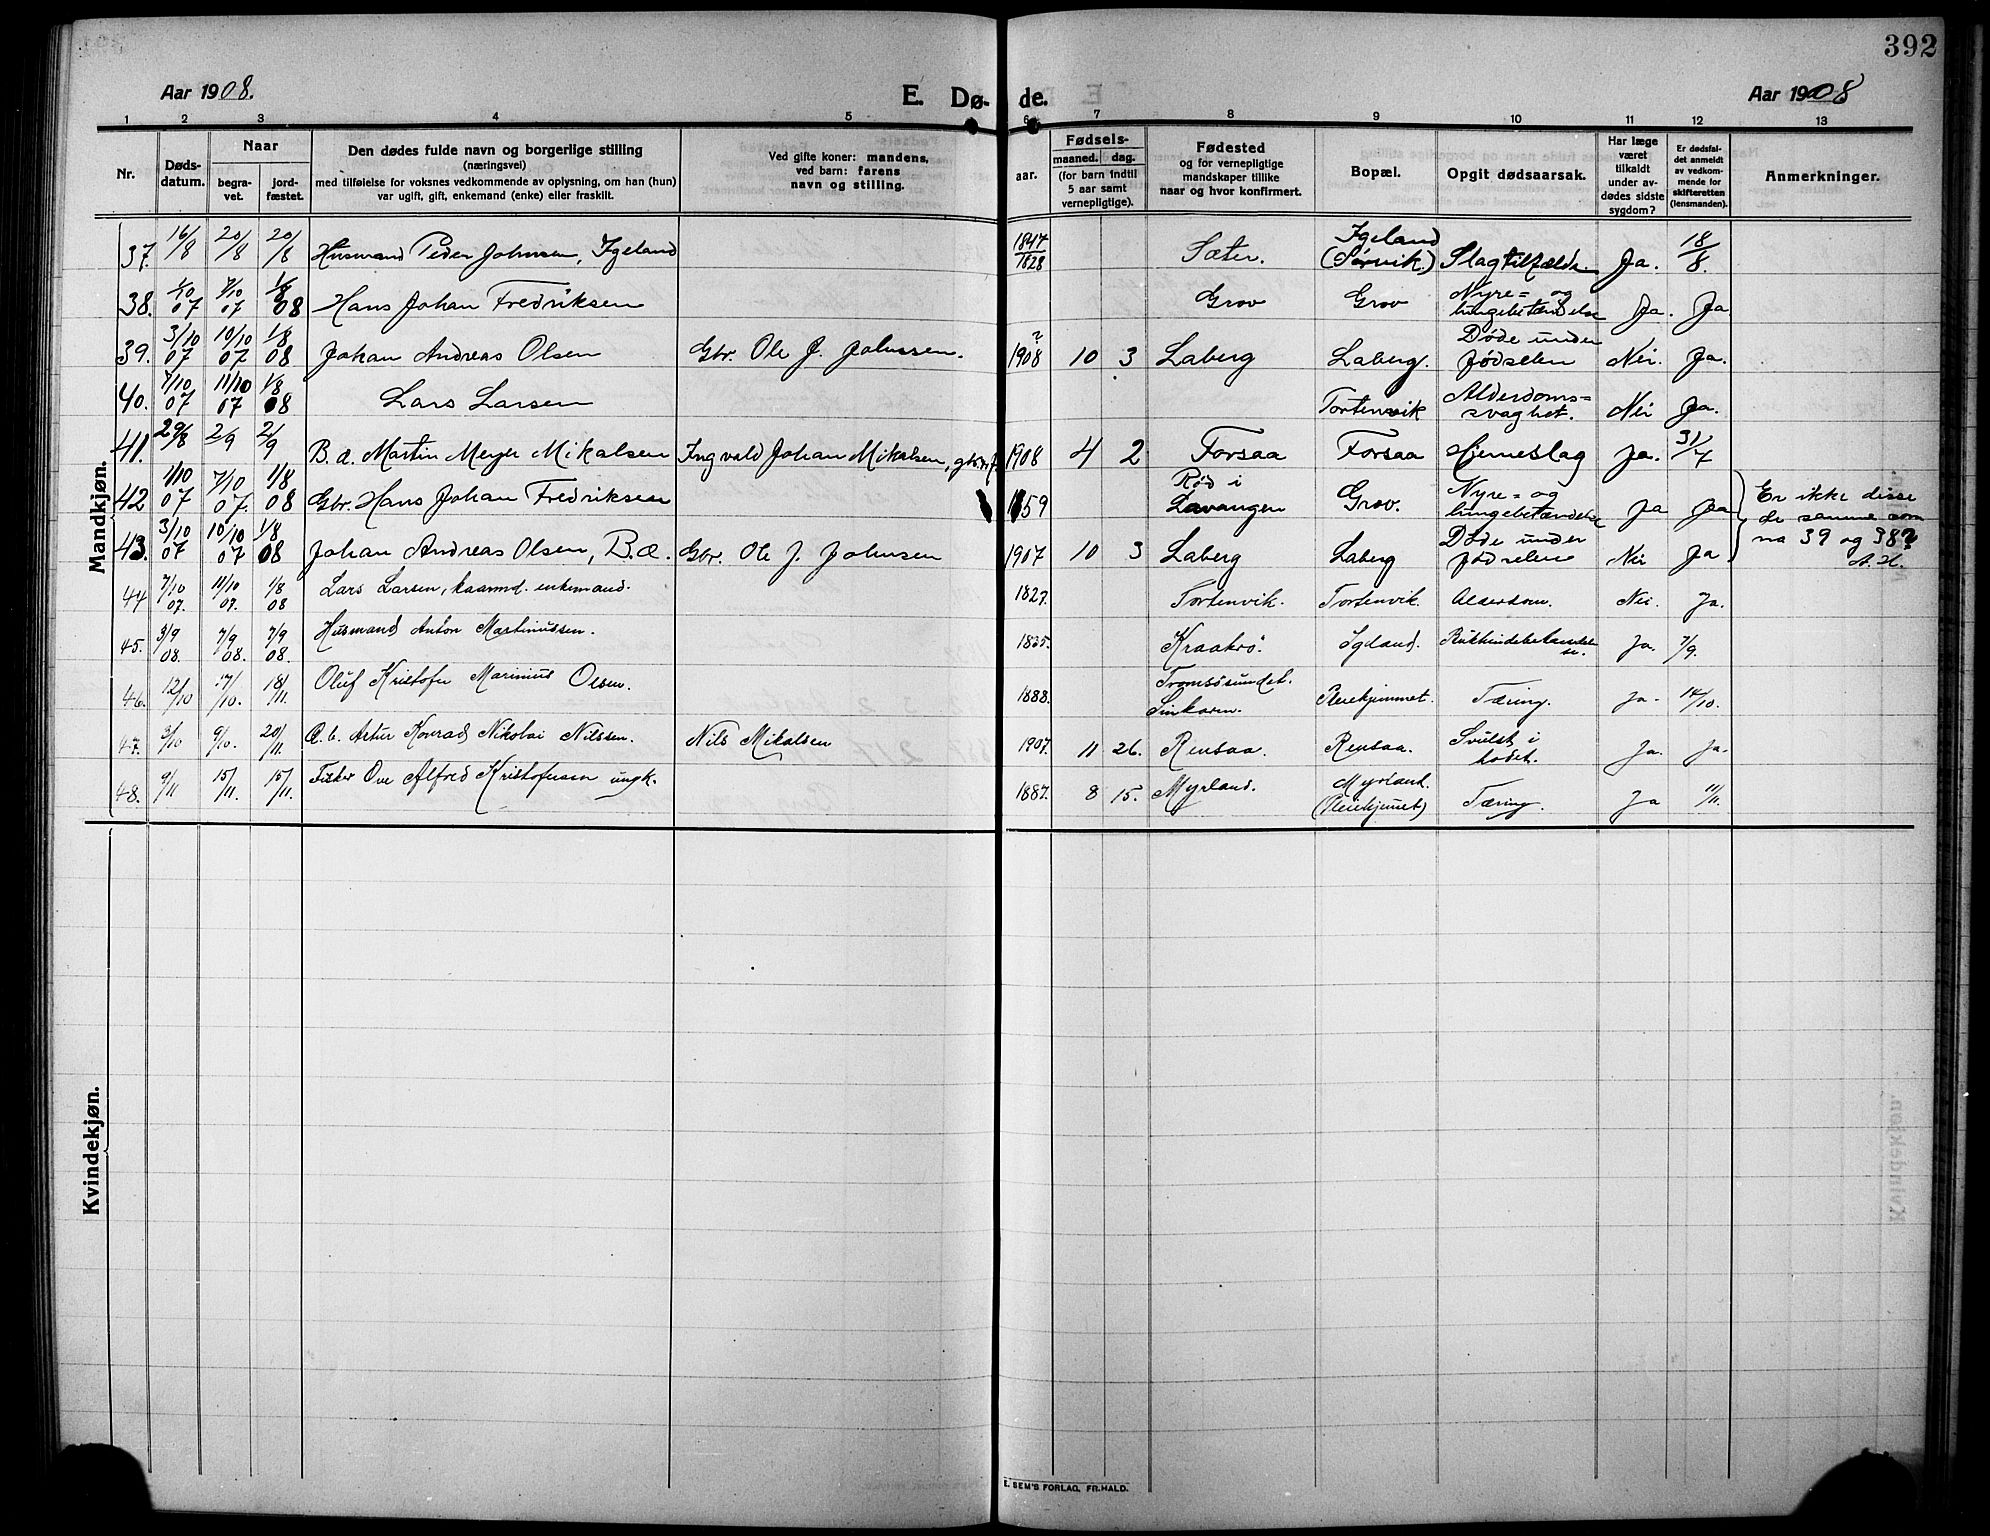 392
Aar 1908.
E. Dø- de.
Aar 1908
1 2 3 4 5 6 7 8 9 10 11 12 13
Nr.
Døds-
datum.
Naar
begra-
vet.
jord-
fæstet.
Den dødes fulde navn og borgerlige stilling
(næringsvei)
med tilføielse for voksnes vedkommende av oplysning, om han (hun)
var ugift, gift, enkemand (enke) eller fraskilt.
Ved gifte koner: mandens,
ved barn: farens
navn og stilling.
Fødsels-
aar.
maaned. dag.
(for barn indtil
5 aar samt
vernepligtige).
Fødested
og for vernepligtige
mandskaper tillike
naar og hvor konfirmert.
Bopæl.
Opgit dødsaarsak.
Har læge
været
tilkaldt
under av-
dødes sidste
sygdom?
Er dødsfal-
det anmeldt
av vedkom-
mende for
skifteretten
(lensmanden).
Anmerkninger.
Mandkjøn.
37. 16/8 20/8 20/8 Husmand Peder Johnsen, Igeland 1847/1828 Sæter. Igeland (Sørvik.) Slagtilfælde Ja. 18/8.
38. 1/10 07 7/10 07 1/8 08 Hans Johan Fredriksen Grov Grov Nyre= og lungebetændelse Ja. Ja
39. 3/10 07 10/10 07 1/8 08 Johan Andreas Olsen Gbr. Ole J. Johnsen. ? 1908 10 3 Laberg Laberg. Døde under fødselen Nei. Ja.
40. 7/10 07 11/10 07 1/8 08 Lars Larsen Tortenvik Alderdoms= svaghet. Nei Ja.
41. 29/8 2/9 2/9 B. æ. Martin Meyer Mikalsen Ingvald Johan Mikalsen, 1908 4 2 Forsaa Forsaa Hjerneslag Ja. 31/7
42 1/10 07 7/10 07. 1/8 08 Gbr. Hans Johan Fredriksen 1859 Rød i Lavangen Grov. Nyre= og lungebetændelse Ja Ja
43. 3/10 07 10/10 07 1/8 08 Johan Andreas Olsen, B.æ. Gbr. Ole J. Johnsen 1907 10 3 Laberg Laberg Døde under fødselene Nei Ja
Er ikke disse
de samme som
na 39 og 38?
A. H.
44 7/10 07. 11/10 07. 1/8 08 Lars Larsen, kaarmd. enkemand. 1827. Tortenvik. Tortenvik. Alderdom. Nei. Ja.
45. 3/9 08. 7/9 08. 7/9 08. Husmand Anton Martinussen. 1835. Kraakrø. Igeland. Ja. 7/9.
46. 12/10 17/10. 18/11. Oluf Kristofer Marinius Olsen. 1888. Tromsøsundet. Pleiehjemmet. Tæring. Ja. 14/10.
47. 3/10 9/10. 20/11. Æ. b. Artur Konrad Nikolai Nilssen. Nils Mikalsen 1907. 11 26. Rensaa. Rensaa. Svulst i hodet. Ja. Ja.
48. 9/11 15/11. 15/11. Fisker Ove Alfred Kristofersen ungk. 1887. 8 15. Myrland. Myrland. (Pleiehjemmet) Tæring. Ja 11/11.
Kvindekjøn.
E. SEM'S FORLAG, FR.HALD.